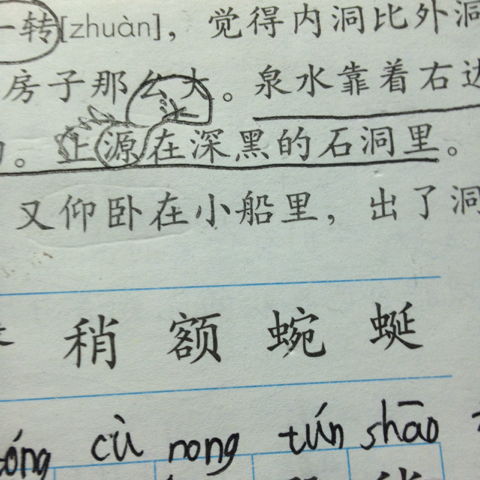 一转[zhuàn]，觉得内洞比外洞
房子那么大。泉水靠着右边
。上源在深黑的石洞里。
又仰卧在小船里，出了洞
稍 额 蜿 蜒
óng cù nong tún shāo